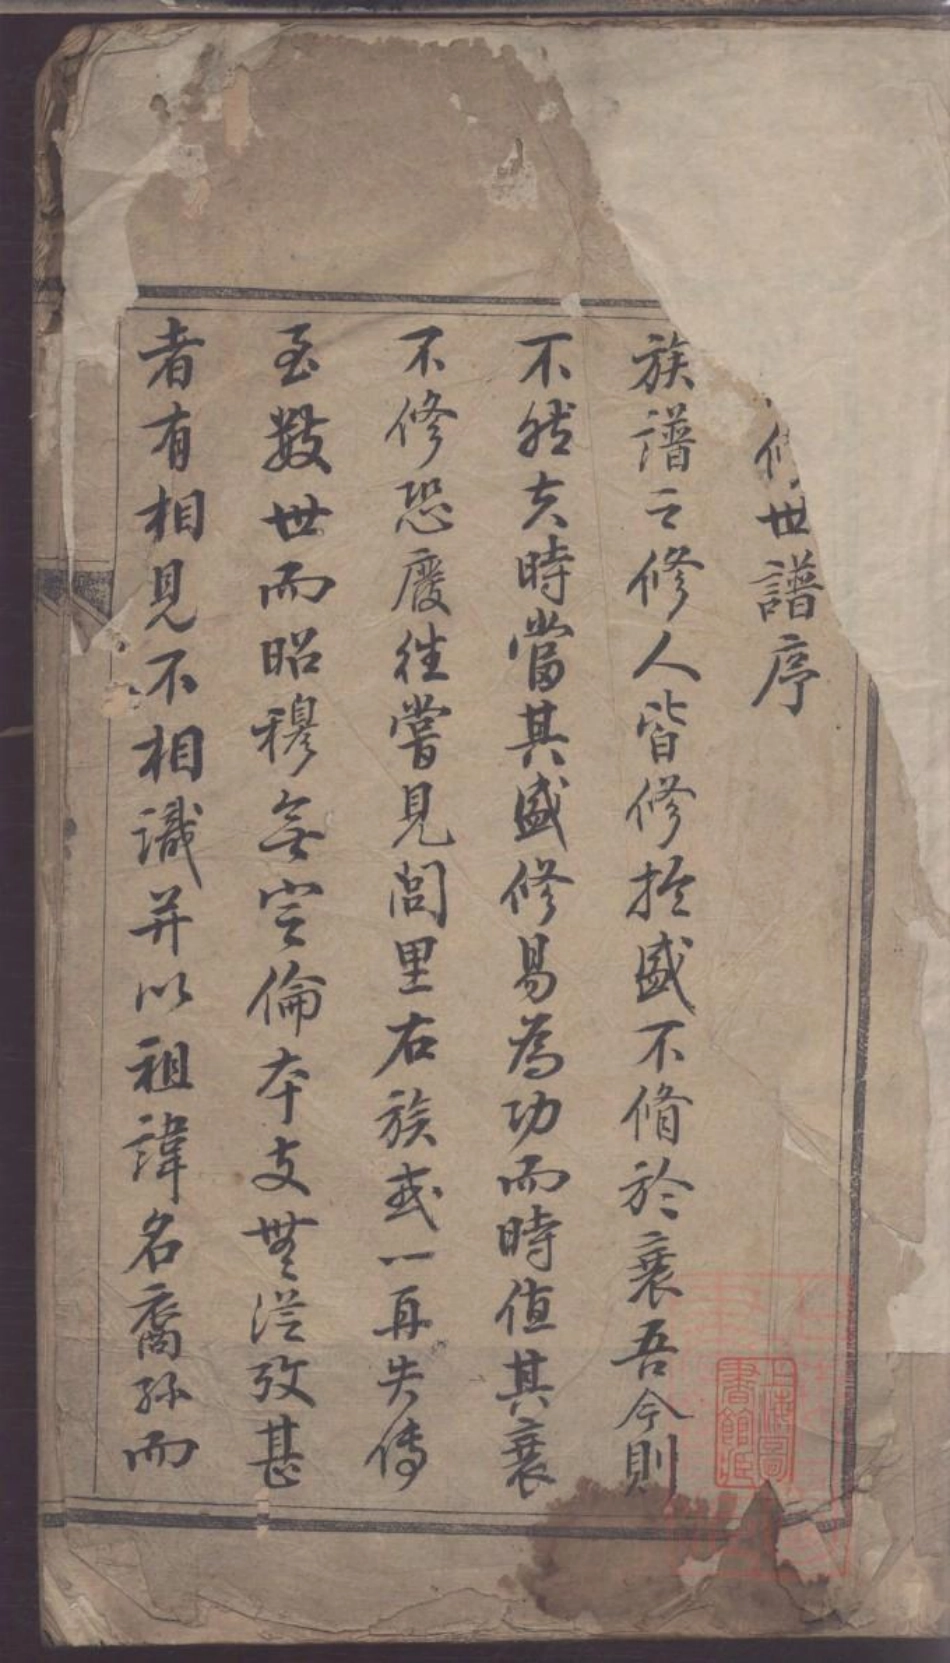 修世譜序
族譜之修人皆修於盛不脩於衰吾今則
不然夫時當其盛修易為功而時值其衰
不修恐廢往嘗見閭里右族或一再失傳
至數世而昭穆無定倫本支無從攷甚
者有相見不相識并以祖諱名裔孫而
上海圖
書館藏